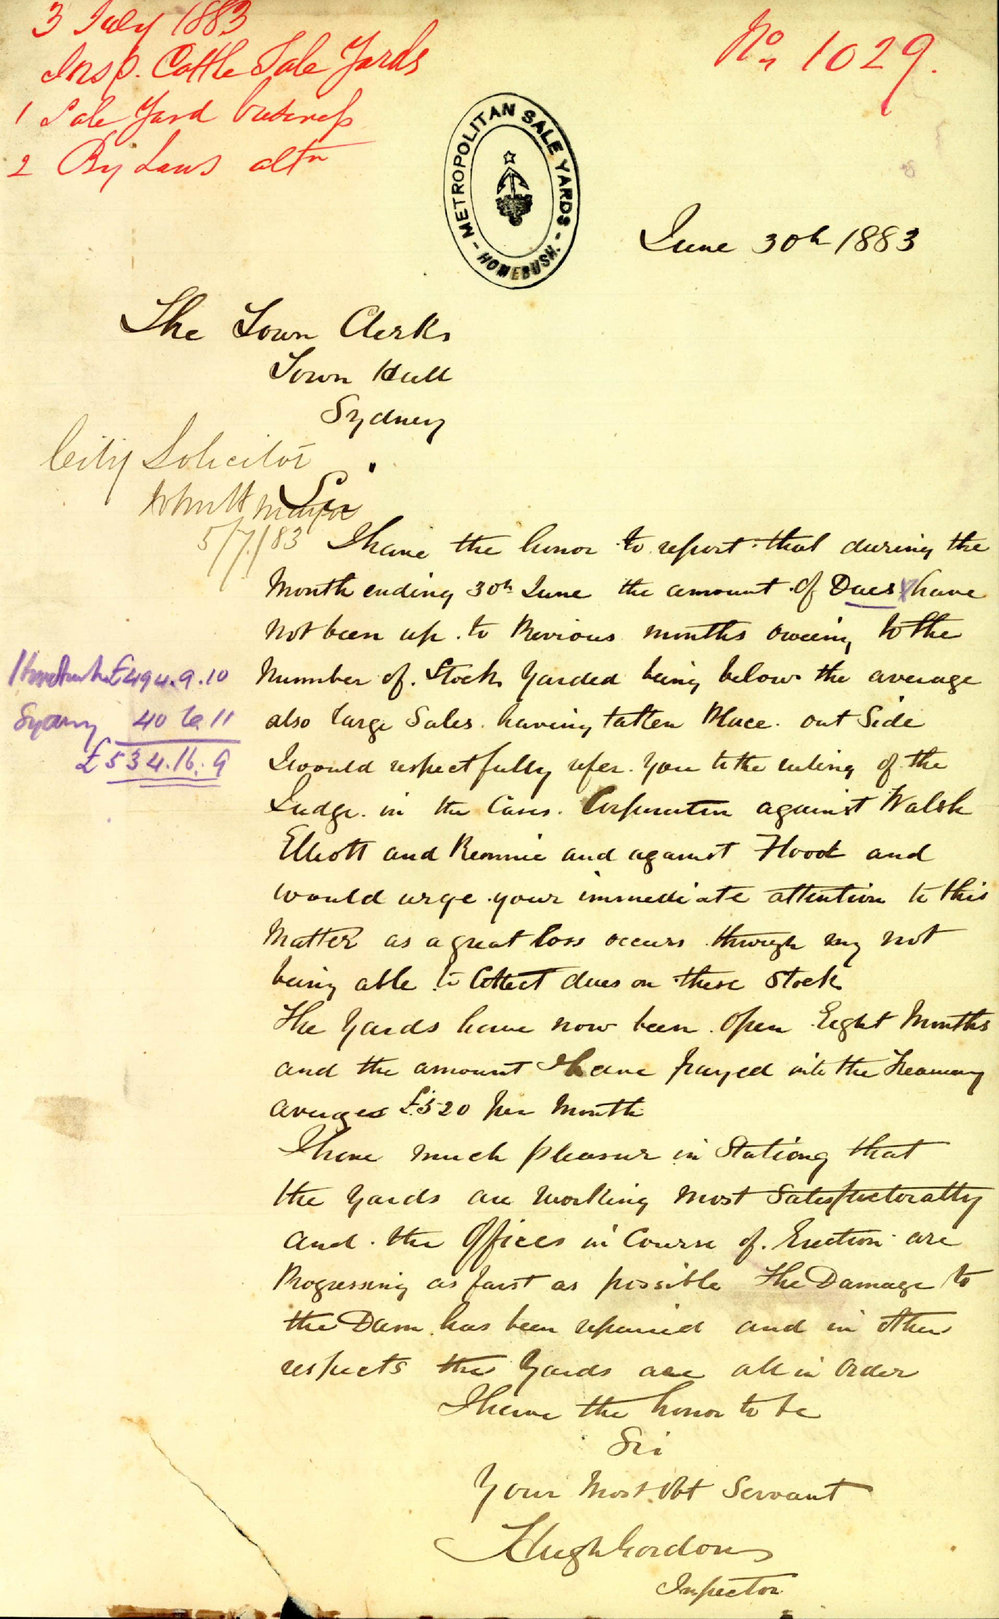 3 July 1883
Insp. Cattle Sale Yards
1 Sale Yard business
2 By Laws altn
No. 1029.
METROPOLITAN SALE YARDS
- HOMEBUSH. -
June 30th 1883
The Town Clerk
Town Hall
Sydney
City Solicitor
Mayor
5/7/83
Sir
I have the honor to report that during the
Month ending 30th June the amount of Dues have
not been up to Previous months oweing to the
Number of Stock Yarded being below the average
also large Sales having taken Place out Side
Homebush £494.9.10
Sydney 40 6 11
£534.16.9
I would respectfully refer you to the ruling of the
Judge in the Cases Corporation against Walsh
Elliott and Rennie and against Flood and
would urge your immediate attention to this
Matter as a great loss occurs through my not
being able to Collect dues on these Stock
The Yards have now been open Eight Months
and the amount I have payed into the Treasury
averages £520 per Month
I have much pleasure in Stationg that
the Yards are working most Satisfactoratly
and the Offices in Course of Erection are
Progressing as fast as possible The Damage to
the Dam has been repaired and in other
respects the Yards are all in order
I have the honor to be
Sir
Your Most Obt Servant
Hugh Gordon
Inspector